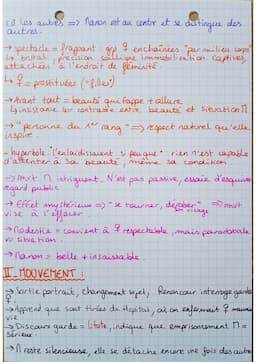 ⊖ les autres => Manon est au centre et se distingue des
autres.
→ spectacle = frappant gp ♀ enchaînées "par milieu corps"
↳ brutal, précision souligne immobilisation. Captives,
attachées à l'endroit de féminité.
↳ ♀ = prostituées ("filles")
→ Avant tout = beauté qui frappe + allure
↳ insistance sur contraste entre beauté et situation M
→ "personne du 1er rang" => respect naturel que'elle
inspire.
→ hyperbole "l'enlaidissaient si peu que": rien n'est capable
d'attenter à sa beauté, même sa condition.
→ mvt M intriguent. N'est pas passive, essaie d'esquiver
regard public
→ Effet mystérieux => "se tourner, dérober" => mvt
son visage
vise à s'effacer
→ Modestie = convient à ♀ respectable, mais paradoxale
vu situation.
→ Manon = belle + insaisissable.
II_ MOUVEMENT :
→ Sortie portrait, changement sujet, Renoncour interroge garde
→ Apprend que sont tirées de l'hôpital, où on enfermait ♀ mauvaise
vie
→ Discours garde = litote, indique que emprisonnement M =
sérieux
→ M reste silencieuse, elle se détache encore une fois des autres